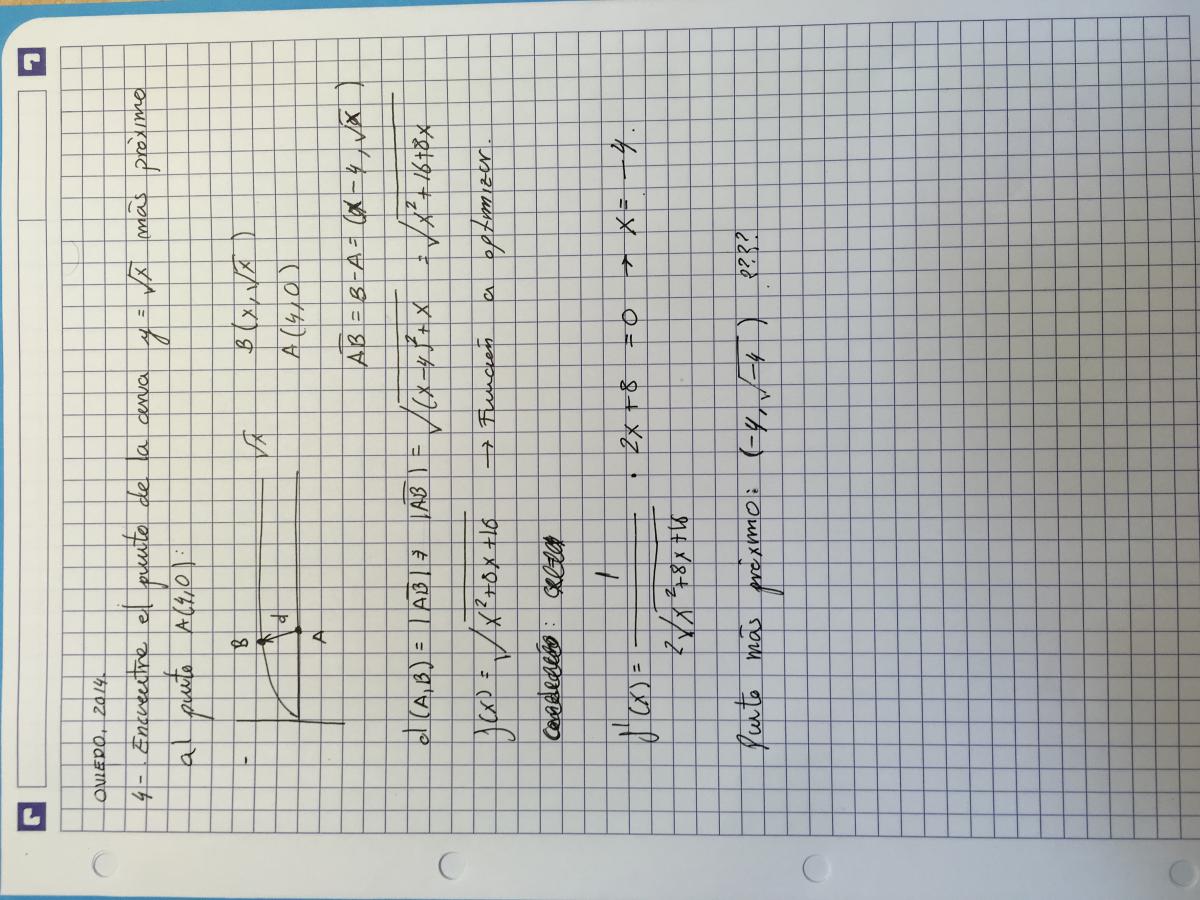 OVIEDO, 2014.
4-. Encuentre el punto de la curva y = √x más próximo
al punto A(4,0):
√x
B
d
A
B(x,√x)
A(4,0)
AB = B-A = (x-4,√x)
d(A,B) = |AB| → |AB| = √(x-4)²+x = √x²+16+8x
f(x) = √x²+8x+16 → Función a optimizar.
f'(x) = 1 / 2√x²+8x+16 · 2x+8 = 0 → x = -4.
Punto más próximo: (-4,√-4) ????.